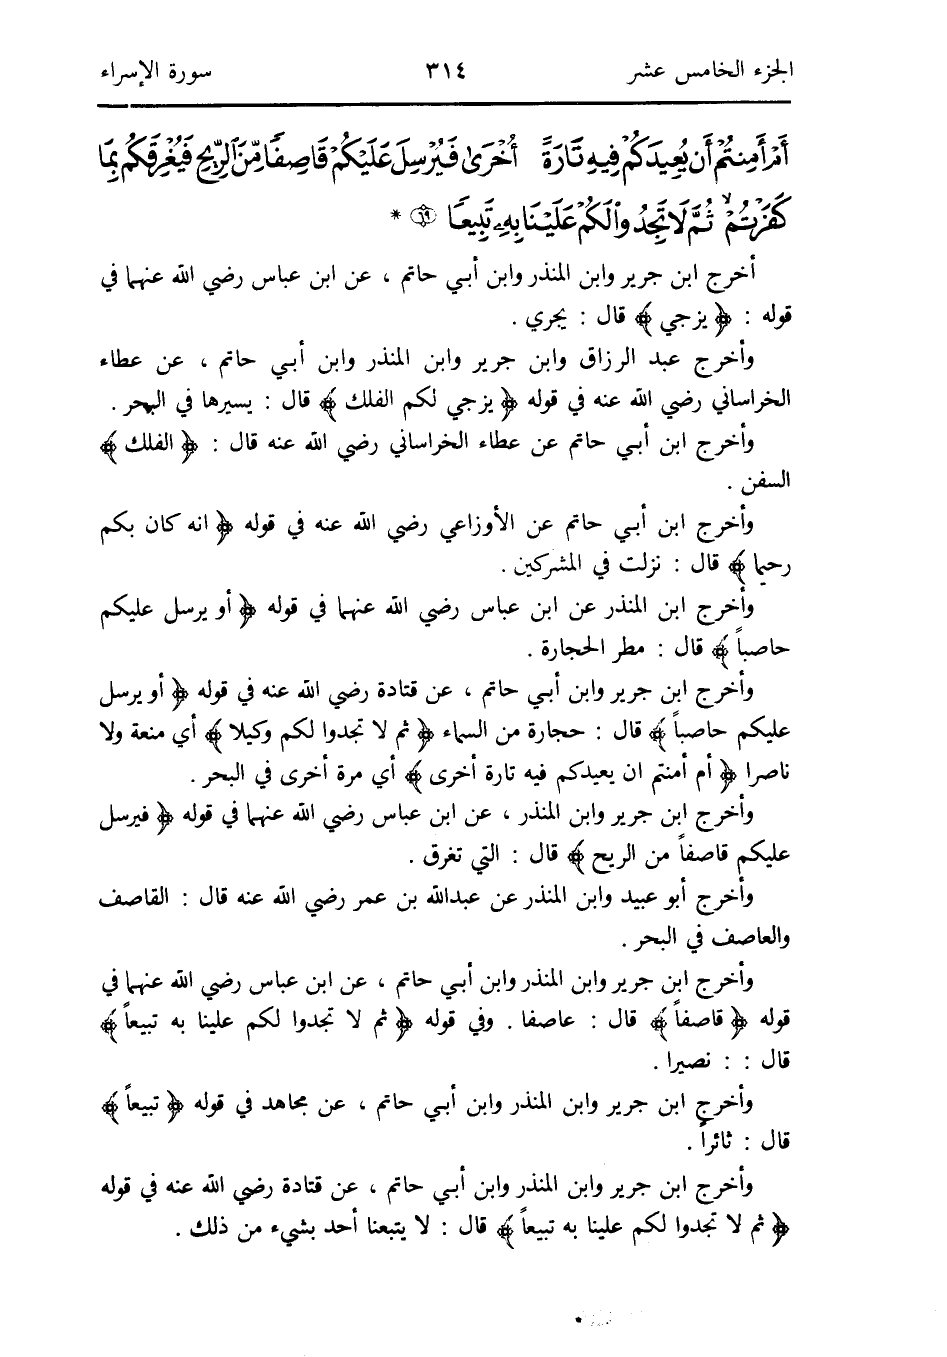 الجزء الخامس عشر ٣١٤ سورة الإسراء
أَمْ أَمِنتُمْ أَن يُعِيدَكُمْ فِيهِ تَارَةً أُخْرَىٰ فَيُرْسِلَ عَلَيْكُمْ قَاصِفًا مِّنَ ٱلرِّيحِ فَيُغْرِقَكُم بِمَا
كَفَرْتُمْ ۙ ثُمَّ لَا تَجِدُوا۟ لَكُمْ عَلَيْنَا بِهِۦ تَبِيعًا ٦٩ *
أخرج ابن جرير وابن المنذر وابن أبي حاتم ، عن ابن عباس رضي الله عنهما في
قوله : ﴿ يزجي ﴾ قال : يجري .
وأخرج عبد الرزاق وابن جرير وابن المنذر وابن أبي حاتم ، عن عطاء
الخراساني رضي الله عنه في قوله ﴿ يزجي لكم الفلك ﴾ قال : يسيرها في البحر .
وأخرج ابن أبي حاتم عن عطاء الخراساني رضي الله عنه قال : ﴿ الفلك ﴾
السفن .
وأخرج ابن أبي حاتم عن الأوزاعي رضي الله عنه في قوله ﴿ انه كان بكم
رحيما ﴾ قال : نزلت في المشركين .
وأخرج ابن المنذر عن ابن عباس رضي الله عنهما في قوله ﴿ أو يرسل عليكم
حاصباً ﴾ قال : مطر الحجارة .
وأخرج ابن جرير وابن أبي حاتم ، عن قتادة رضي الله عنه في قوله ﴿ أو يرسل
عليكم حاصباً ﴾ قال : حجارة من السماء ﴿ ثم لا تجدوا لكم وكيلا ﴾ أي منعة ولا
ناصرا ﴿ أم أمنتم ان يعيدكم فيه تارة أخرى ﴾ أي مرة أخرى في البحر .
وأخرج ابن جرير وابن المنذر ، عن ابن عباس رضي الله عنهما في قوله ﴿ فيرسل
عليكم قاصفاً من الريح ﴾ قال : التي تغرق .
وأخرج أبو عبيد وابن المنذر عن عبدالله بن عمر رضي الله عنه قال : القاصف
والعاصف في البحر .
وأخرج ابن جرير وابن المنذر وابن أبي حاتم ، عن ابن عباس رضي الله عنهما في
قوله ﴿ قاصفاً ﴾ قال : عاصفا . وفي قوله ﴿ ثم لا تجدوا لكم علينا به تبيعاً ﴾
قال : : نصيرا .
وأخرج ابن جرير وابن المنذر وابن أبي حاتم ، عن مجاهد في قوله ﴿ تبيعاً ﴾
قال : ثائراً .
وأخرج ابن جرير وابن المنذر وابن أبي حاتم ، عن قتادة رضي الله عنه في قوله
﴿ ثم لا تجدوا لكم علينا به تبيعاً ﴾ قال : لا يتبعنا أحد بشيء من ذلك .